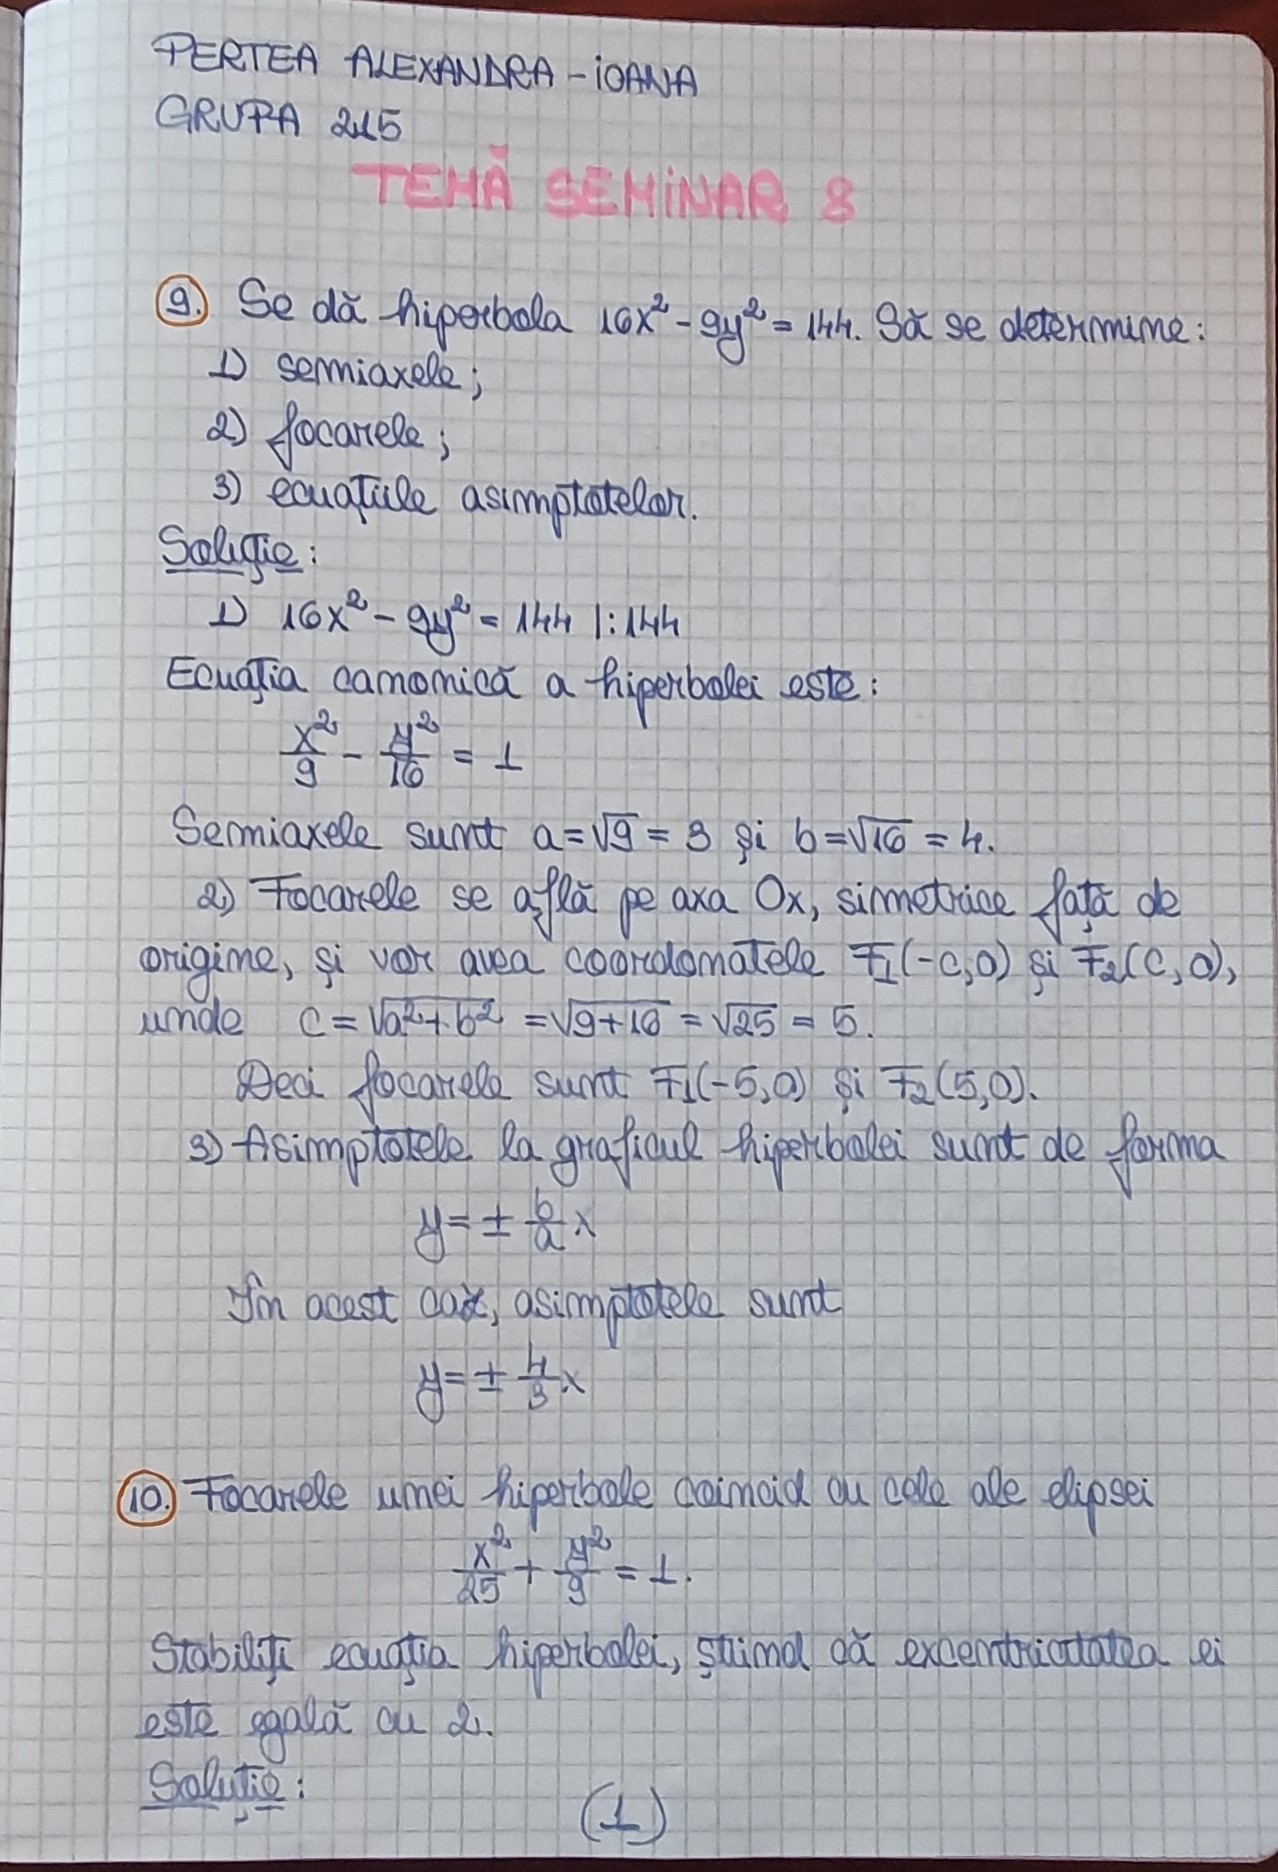 PERTEA ALEXANDRA - IOANA
GRUPA 215
TEMĂ SEMINAR 8
9. Se dă hiperbola 16x² - 9y² = 144. Să se determine:
1) semiaxele;
2) focarele;
3) ecuațiile asimptotelor.
Soluție:
1) 16x² - 9y² = 144 |:144
Ecuația canonică a hiperbolei este:
x²/9 - y²/16 = 1
Semiaxele sunt a = √9 = 3 și b = √16 = 4.
2) Focarele se află pe axa Ox, simetrice față de
origine, și vor avea coordonatele F₁(-c,0) și F₂(c,0),
unde c = √a²+b² = √9+16 = √25 = 5.
Deci focarele sunt F₁(-5,0) și F₂(5,0).
3) Asimptotele la graficul hiperbolei sunt de forma
y = ± b/a x
În acest caz, asimptotele sunt
y = ± 4/3 x
10. Focarele unei hiperbole coincid cu cele ale elipsei
x²/25 + y²/9 = 1.
Stabiliți ecuația hiperbolei, știind că excentricitatea ei
este egală cu 2.
Soluție:
(1)